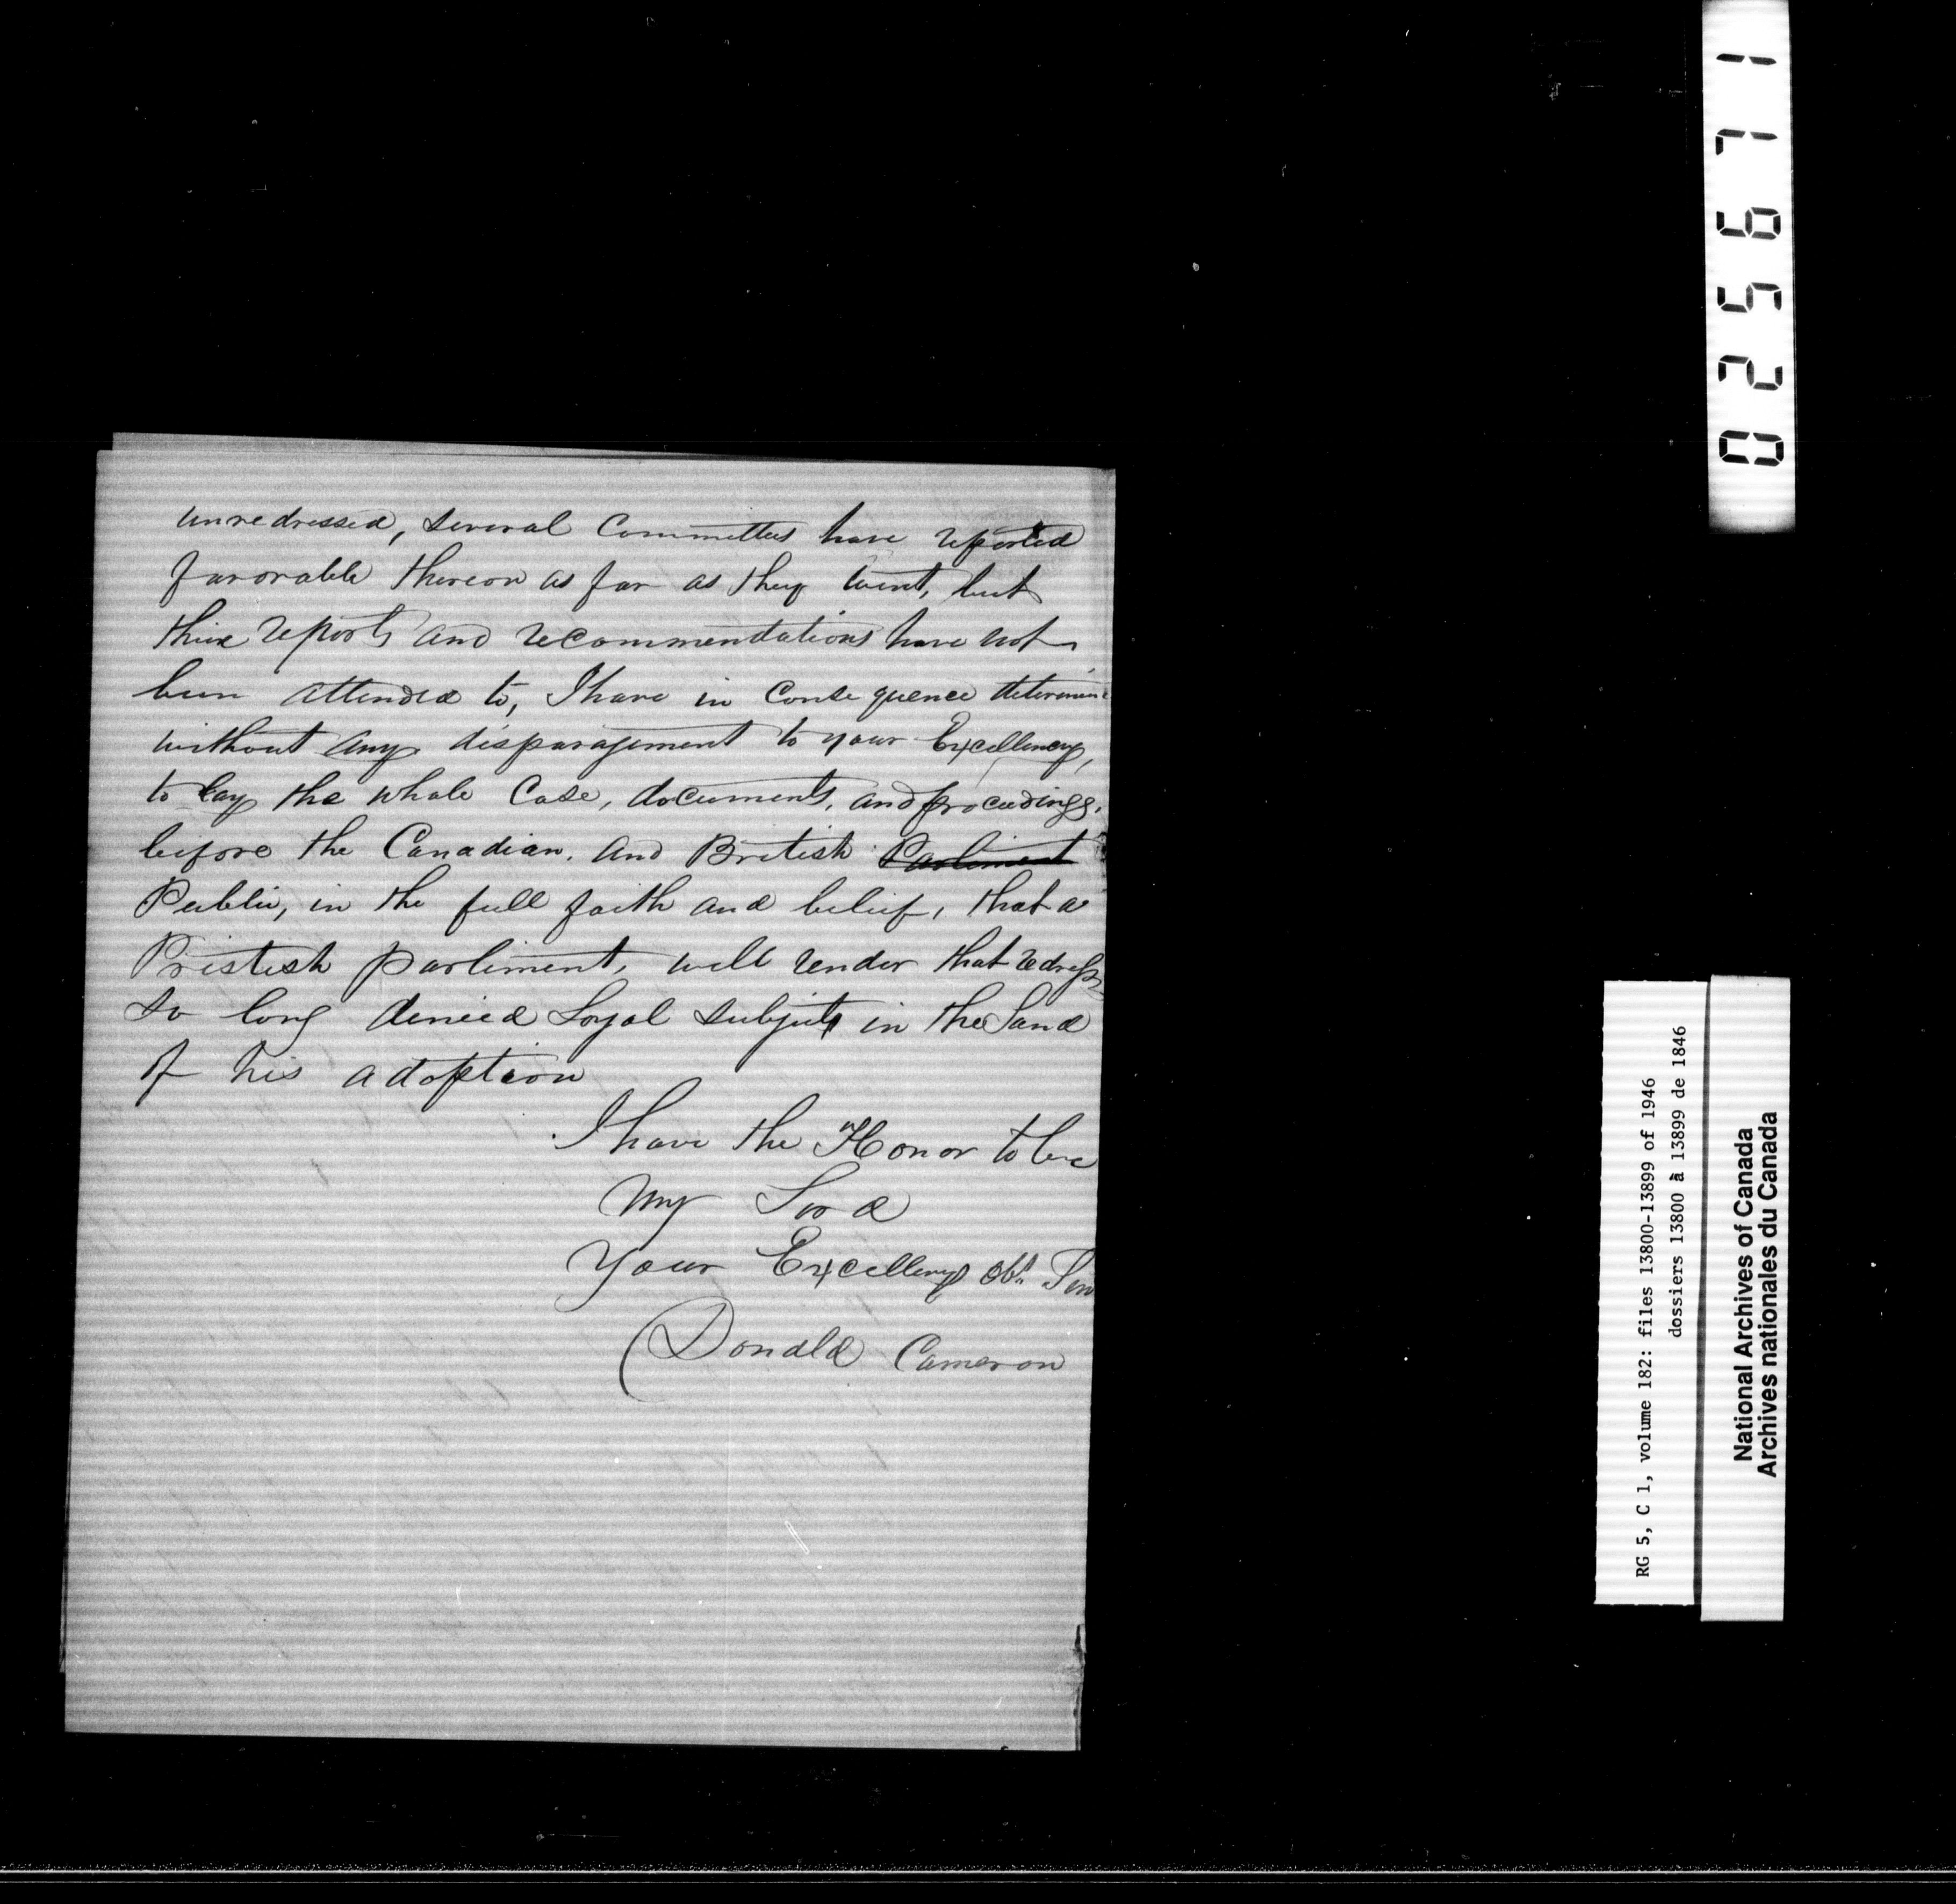 unredressed, several Committees have reported
favorable thereon as far as they went, but
their reports and recommendations have not
been attended to, I have in Consequence determine
without any disparagement to your Excellency,
to lay the whole Case, documents, and proceedings,
before the Canadian, and British Parliment
Public, in the full faith and belief, that a
Bristish parliment, will render that redress
so long denied Loyal subjects in the Land
of his adoption
I have the Honor to be
My Lord
Your Excellency Obt. Serv
Donald Cameron
025671
RG 5, C 1, volume 182: files 13800-13899 of 1946
dossiers 13800 à 13899 de 1846
National Archives of Canada
Archives nationales du Canada